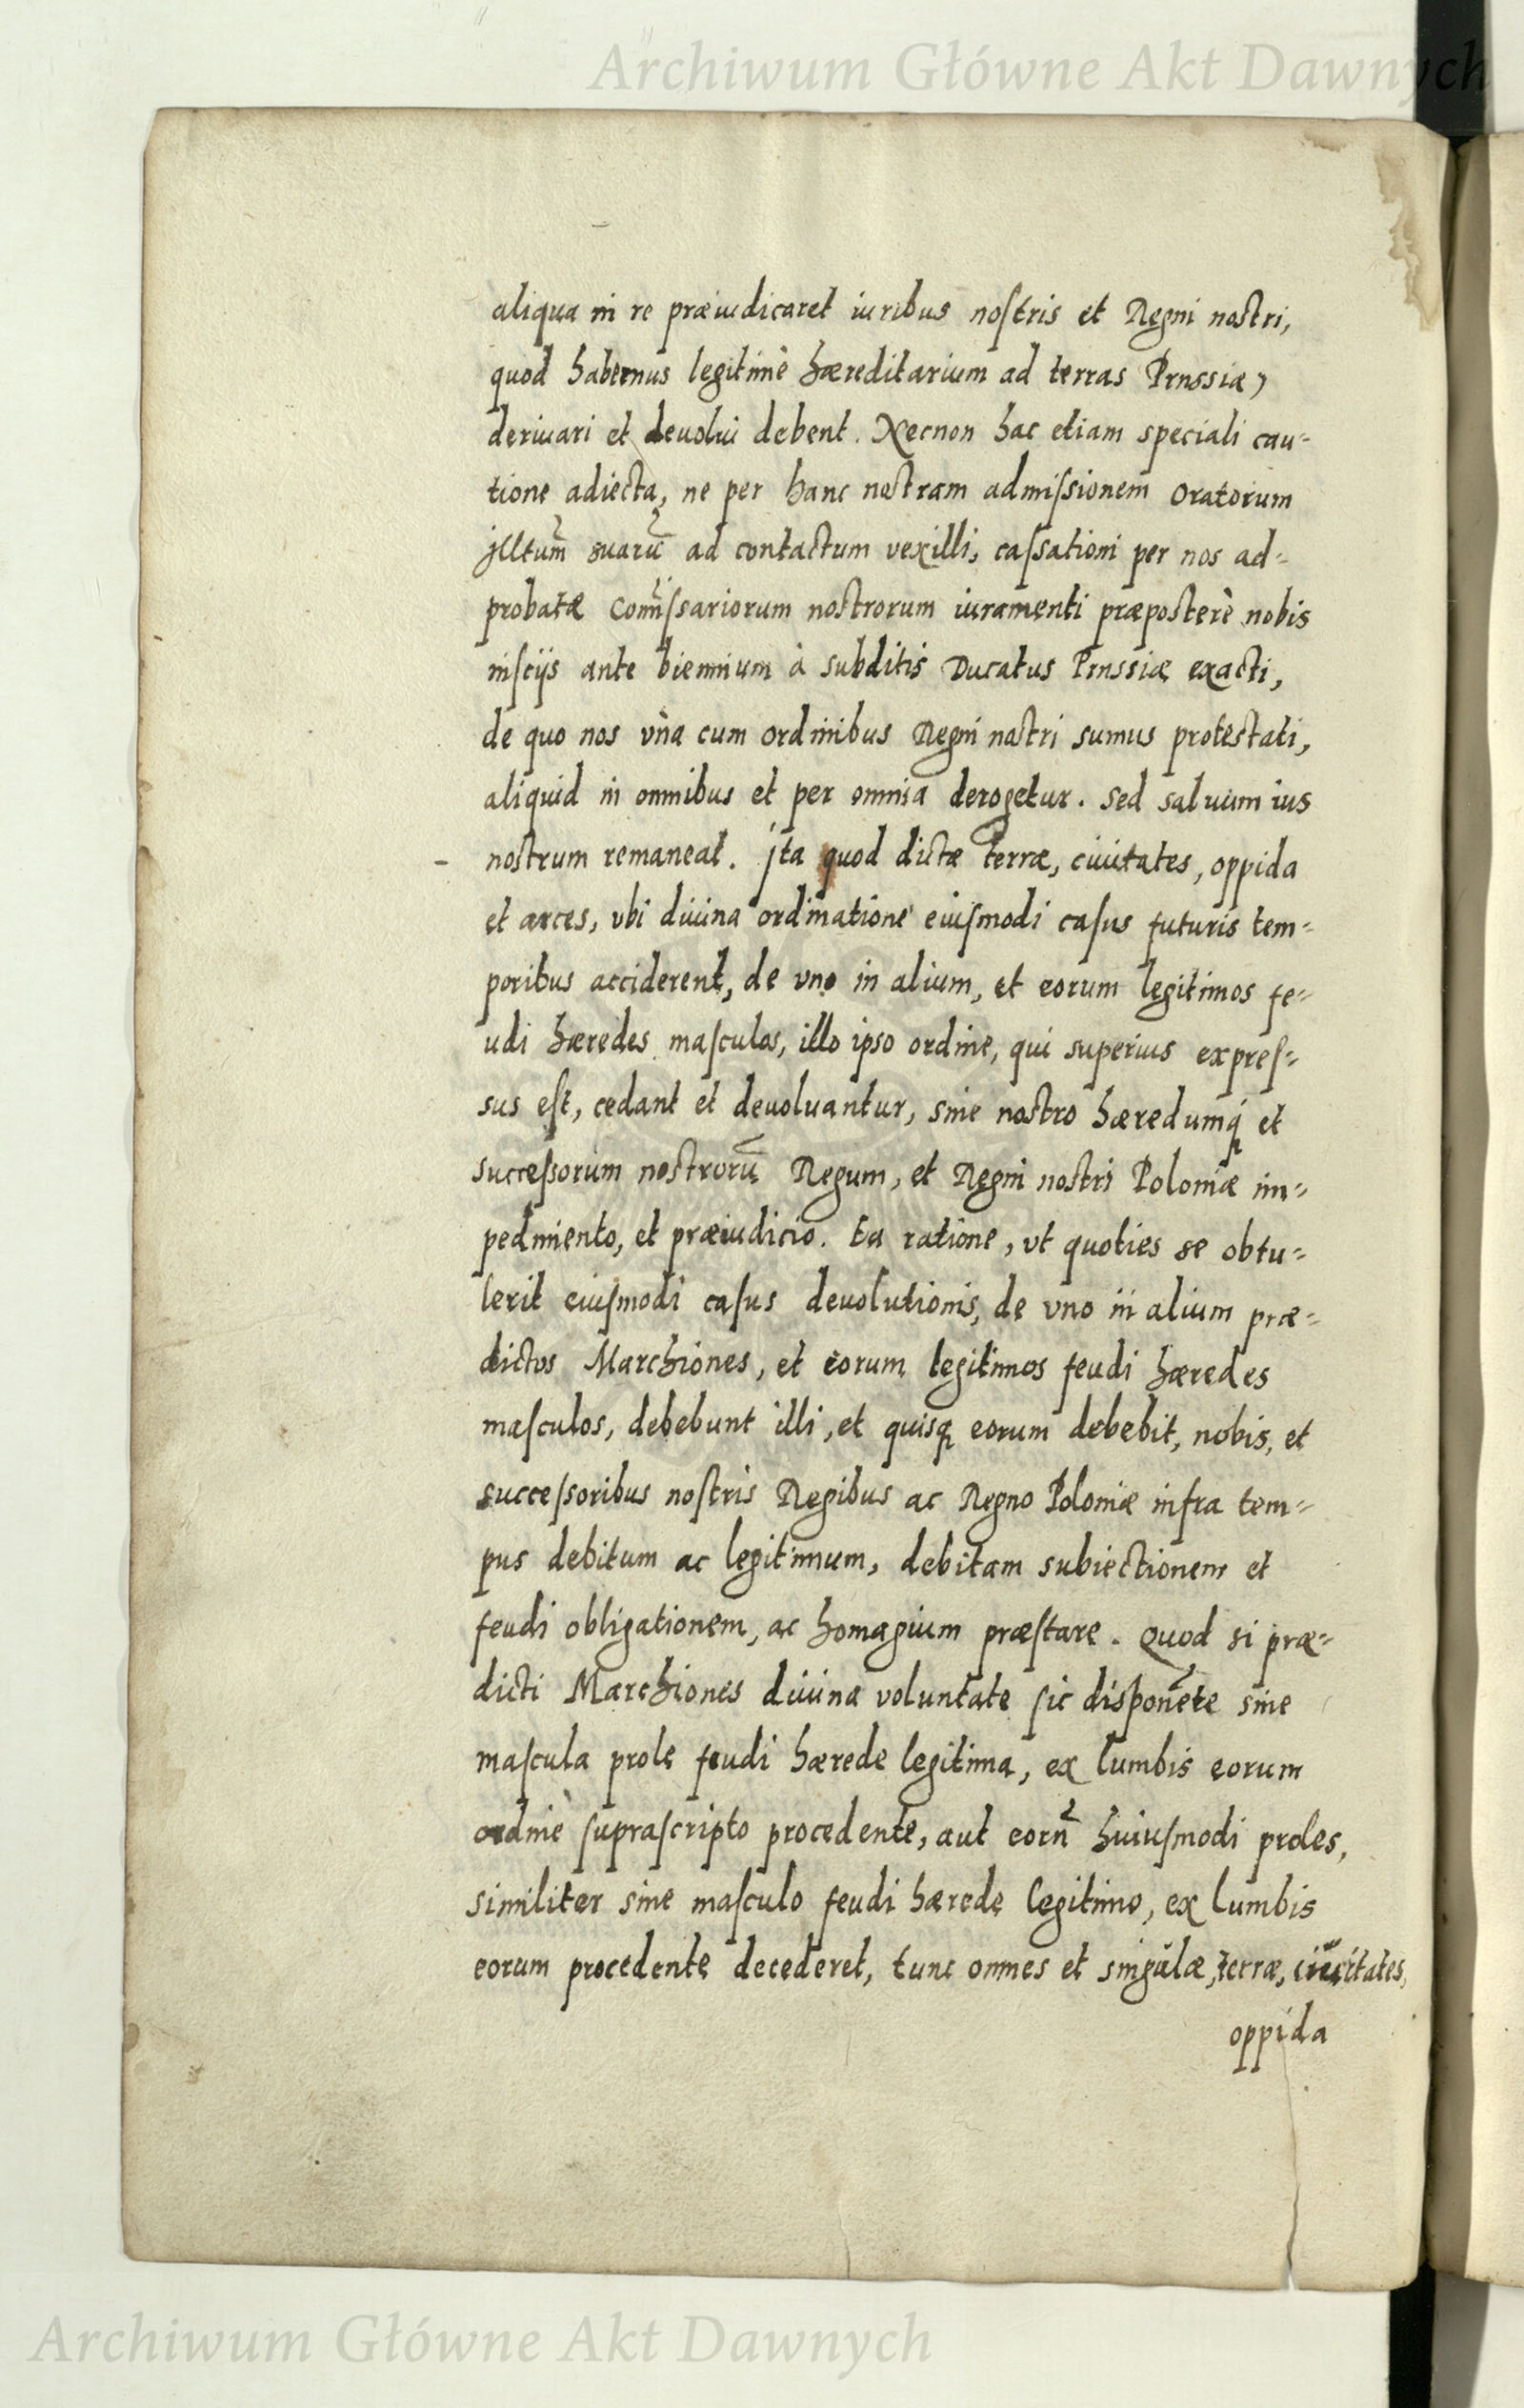 Archiwum Główne Akt Dawnych
aliqua in re præiudicaret iuribus nostris et Regni nostri,
quod habemus legitimè hæreditarium ad terras Prussiæ,
deriuari et deuolui debent. Necnon hac etiam speciali cau=
tione adiecta, ne per hanc nostram admissionem Oratorum
jlltum̃ suarũ ad contactum vexilli, cassationi per nos ad=
probatæ Com̃issariorum nostrorum iuramenti præposterè nobis
insciis ante biennium à subditis Ducatus Prussiæ exacti,
de quo nos vnà cum ordinibus Regni nostri sumus protestati,
aliquid in omnibus et per omnia derogetur. Sed saluum ius
nostrum remaneat. jta quod dictæ terræ, ciuitates, oppida
et arces, vbi diuina ordinatione eiusmodi casus futuris tem=
poribus acciderent, de vno in alium, et eorum legitimos fe=
udi hæredes masculos, illo ipso ordine, qui superius expres=
sus est, cedant et deuoluantur, sine nostro hæredumq́ et
successorum nostrorũ Regum, et Regni nostri Poloniæ im=
pedimento, et præiudicio. Ea ratione, vt quoties se obtu=
lerit eiusmodi casus deuolutionis, de vno in alium præ=
dictos Marchiones, et eorum legitimos feudi hæredes
masculos, debebunt illi, et quisq eorum debebit, nobis, et
successoribus nostris Regibus ac Regno Poloniæ infra tem=
pus debitum ac legitimum, debitam subiectionem et
feudi obligationem, ac homagium præstare. Quod si præ=
dicti Marchiones diuina voluntate sic disponẽte sine
mascula prole feudi hærede legitima, ex lumbis eorum
ordine suprascripto procedente, aut eorũ huiusmodi proles,
similiter sine masculo feudi hærede legitimo, ex lumbis
eorum procedente decederet, tunc omnes et singulæ, terræ, ciuitates,
oppida
Archiwum Główne Akt Dawnych